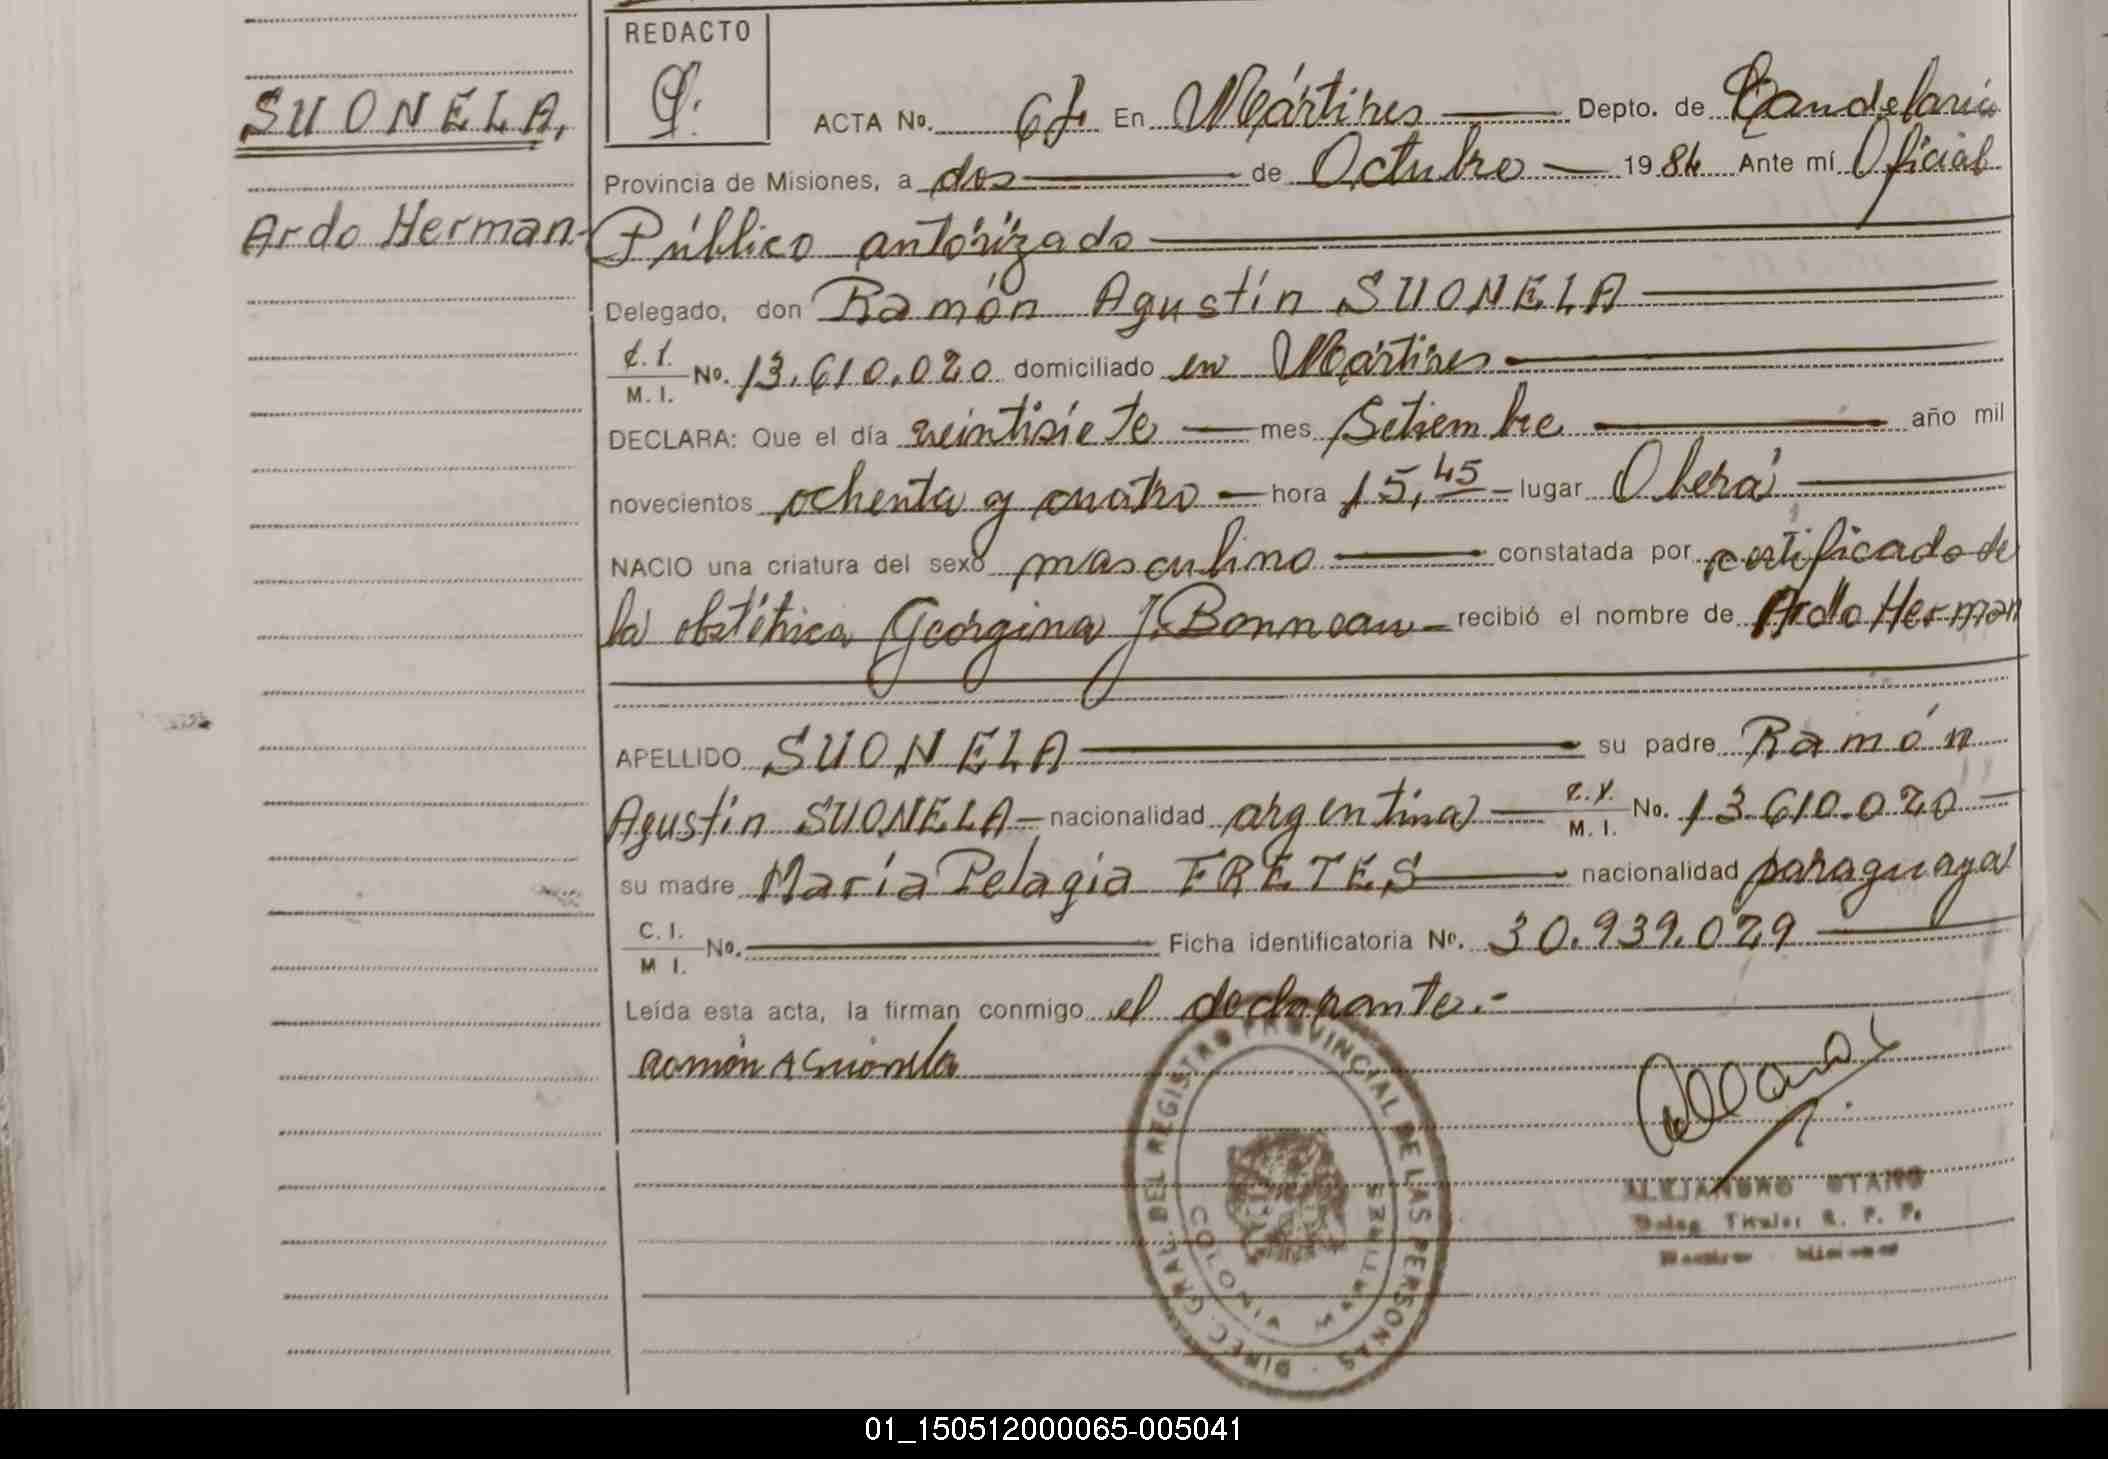 REDACTO
SUONELA,
Ardo Herman-
ACTA No. En Mártires Depto. de Candelaria
Provincia de Misiones, a dos de Octubre 1984 Ante mí Oficial
Público autórizado
Delegado, don Ramón Agustín SUONELA
C. I. / M. I. No. 13.610.020 domiciliado en Mártires
DECLARA: Que el día veintisiete mes Setiembre año mil
novecientos ochenta y cuatro hora 15,45 lugar Oberá
NACIO una criatura del sexo masculino constatada por certificado de
la obstétrica Georgina J. Bonneau recibió el nombre de Ardo Herman
APELLIDO SUONELA su padre Ramón
Agustín SUONELA nacionalidad argentina C. I. / M. I. No. 13.610.020
su madre María Pelagia FRETES nacionalidad paraguaya
C. I. / M I. No. Ficha identificatoria No. 30.939.029
Leída esta acta, la firman conmigo el declarante.-
Ramón A Suonela
DIREC. GRAL. DEL REGISTRO PROVINCIAL DE LAS PERSONAS
COLONIA MARTIRES
ALEJANDRO OTAÑO
Deleg. Titular R. P. P.
Martires Misiones
01_150512000065-005041